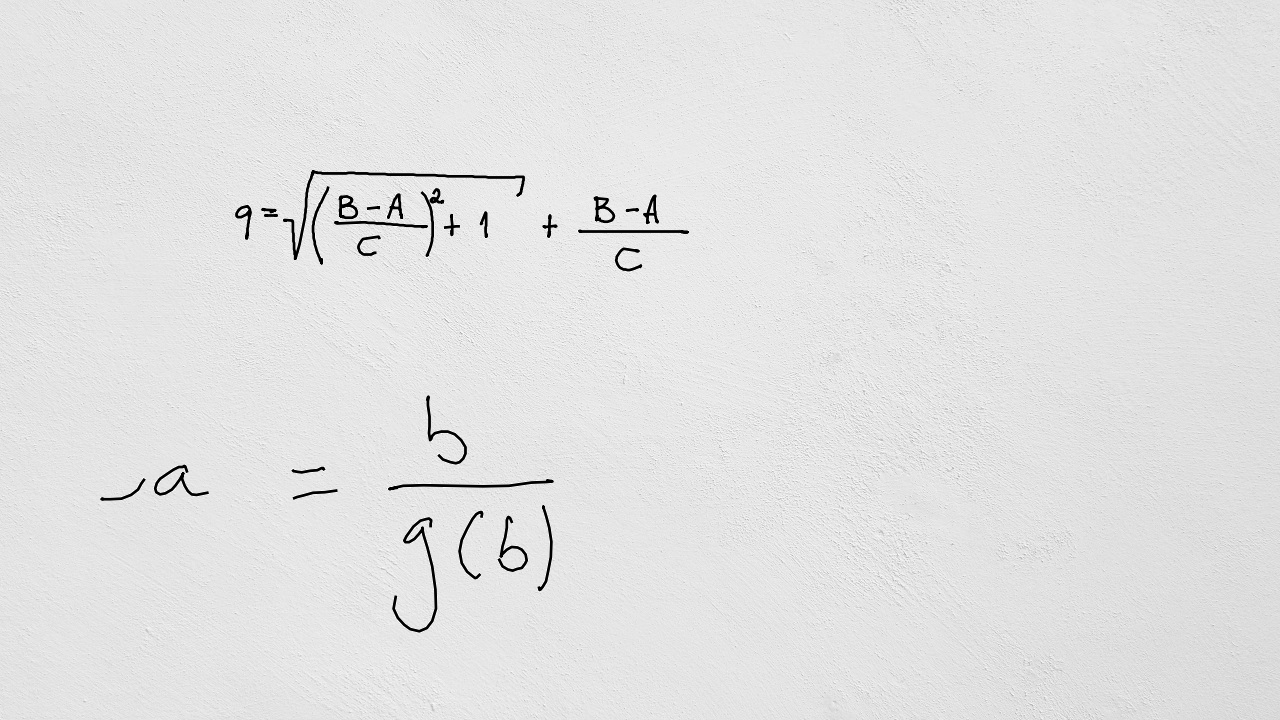 q = \sqrt{\left(\frac{B-A}{C}\right)^2 + 1} + \frac{B-A}{C}
a = \frac{b}{g(b)}